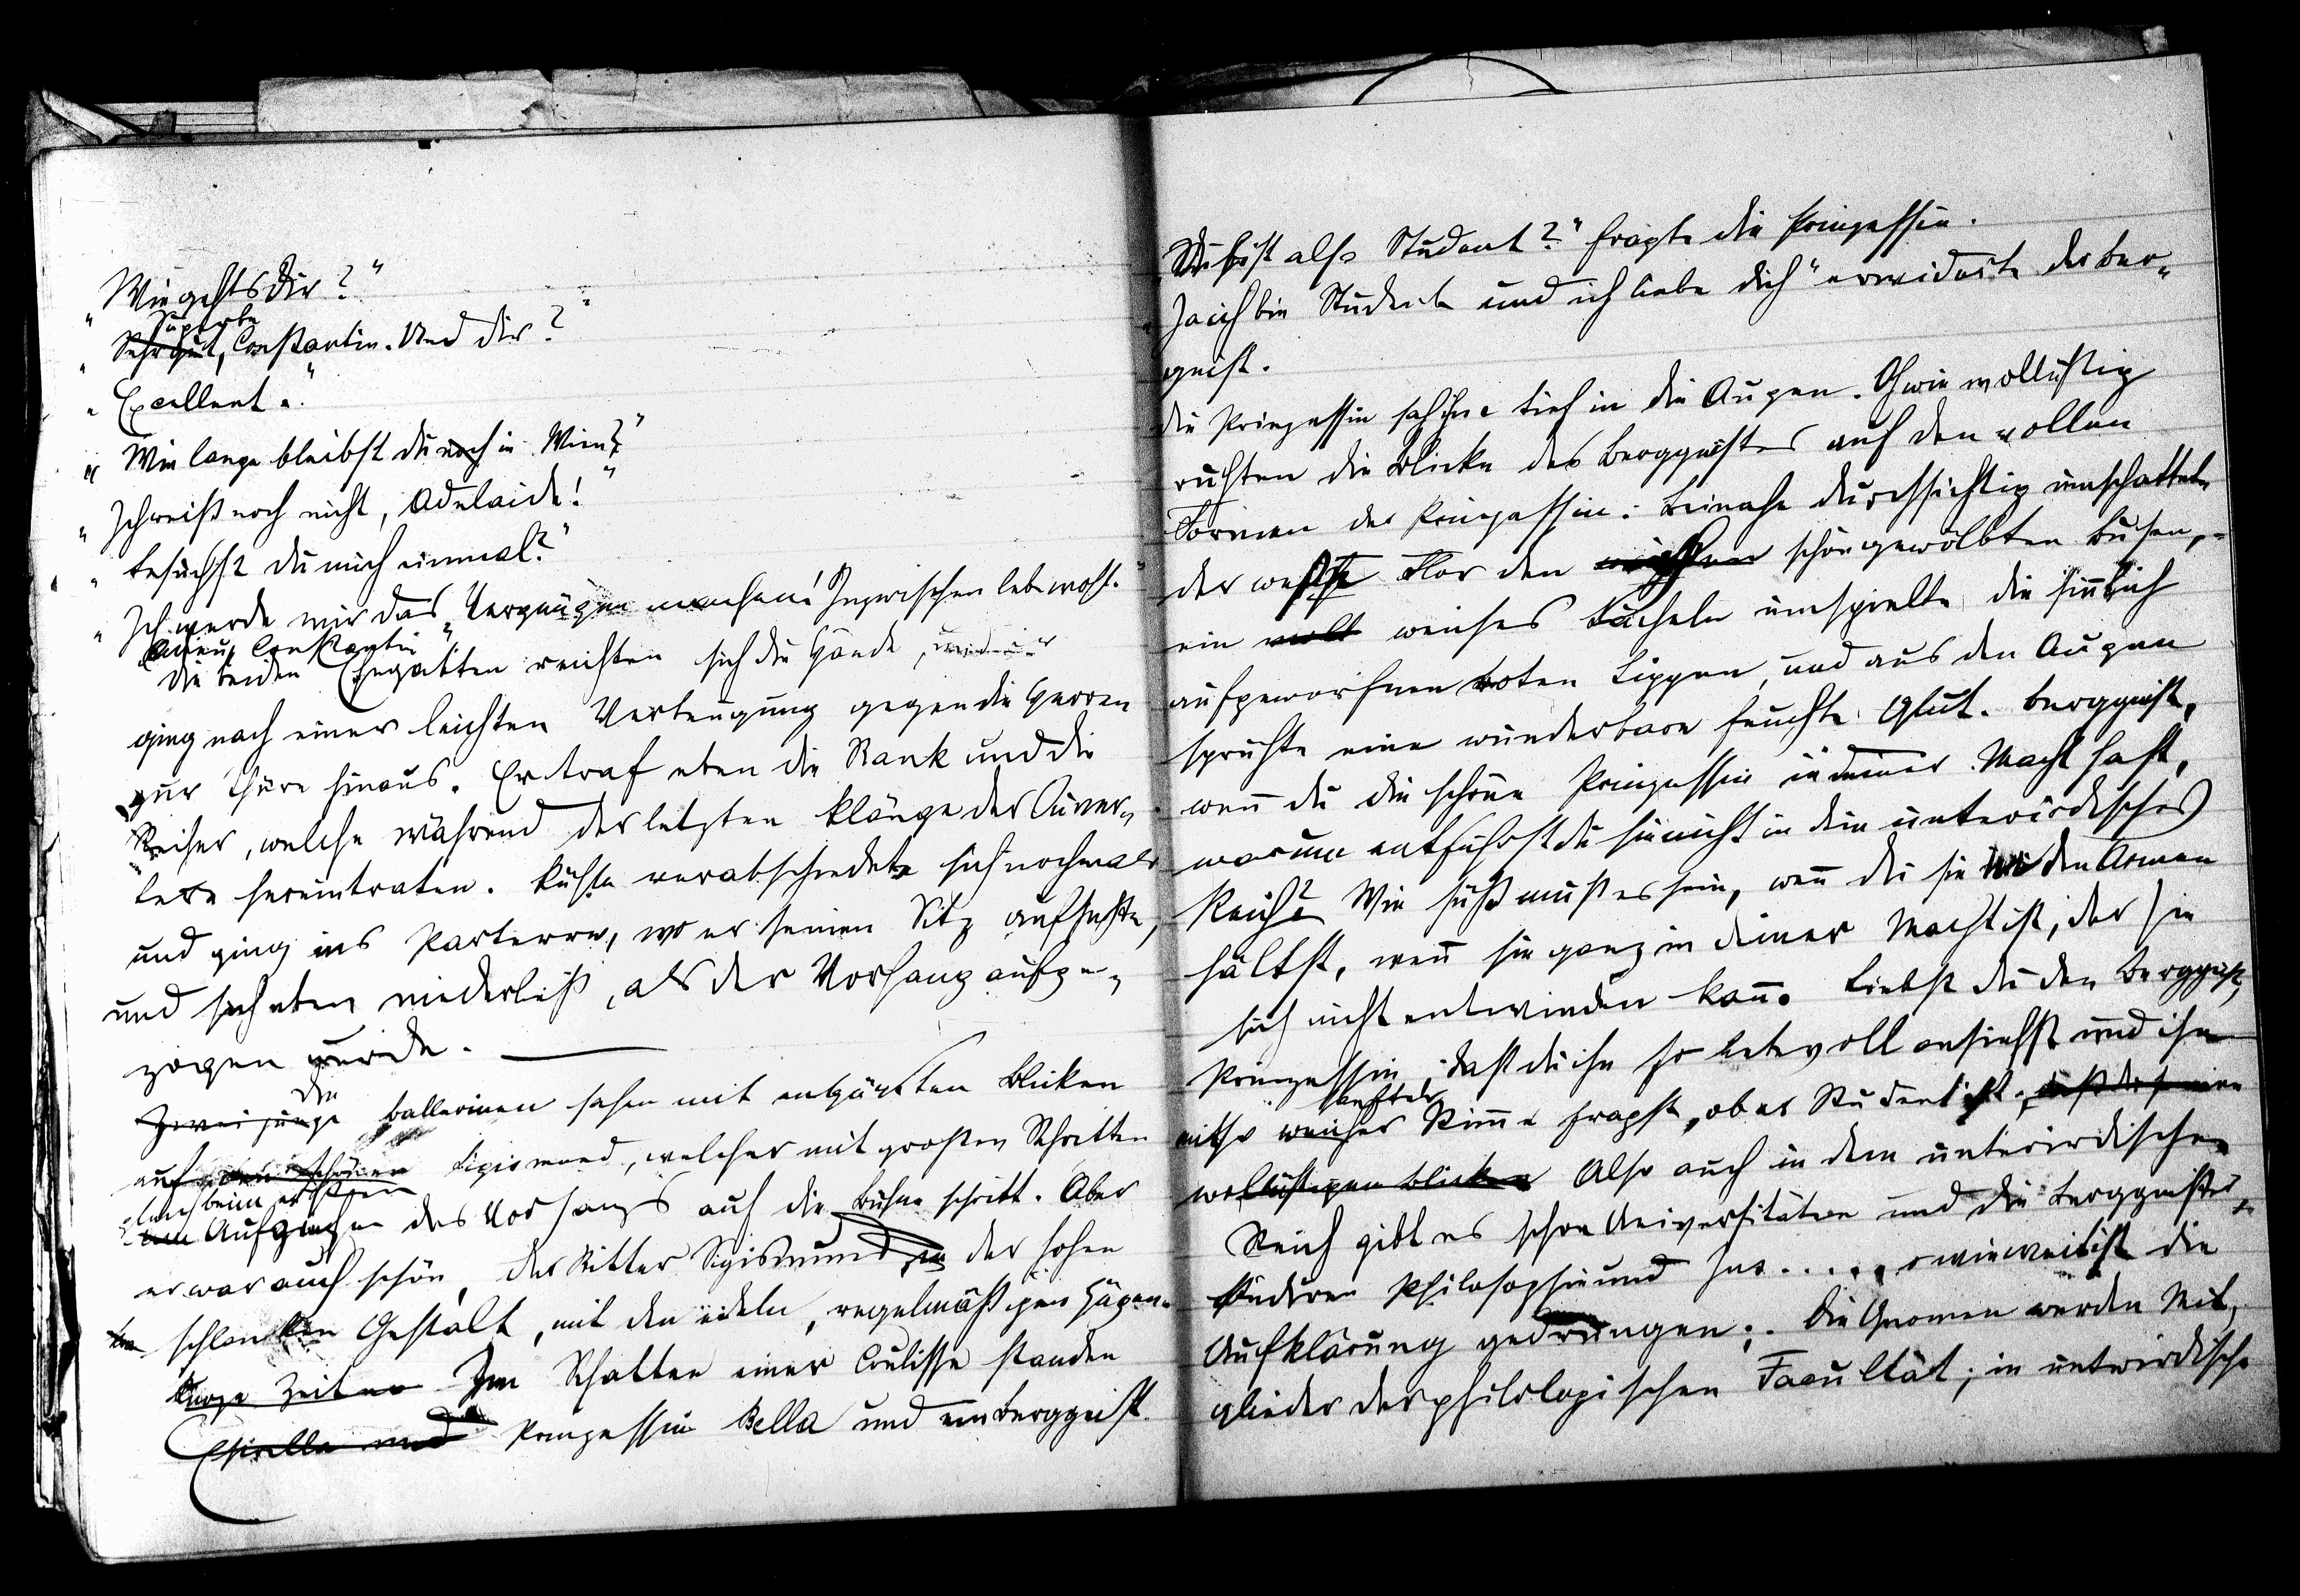 „Wie gehts dir?"
Superbe
„Sehr gut, Constantin. Und dir?"
„Excellent."
„Wie lange bleibst du noch in Wien?"
„Ich weiß noch nicht, Adelaide!"
„Besuchst du mich einmal?"
„Ich werde mir das Vergnügen machen! Inzwischen lebe wohl."
„Adieu, Constantin"
Die beiden Ehegatten reichten sich die Hände, und er
ging nach einer leichten Verbeugung gegen die Herren
zur Thüre hinaus. Er traf eben die Rank und die
Reiher, welche während der letzten Klänge der Ouver„
ture hereintraten. Küßte verabschiedete sich nochmals
und ging ins Parterre, wo er seinen Sitz aufsuchte,
und sich eben niederließ, als der Vorhang aufge„
zogen wurde.
Die
Zwei junge Ballerinen sahen mit entzückten Blicken
auf den schönen Sigismund, welcher mit großen Schritten
gleich beim ersten
Aufgehen des Vorhangs auf die Bühne schritt. Aber
er war auch schön, der Ritter Sigismund in der hohen
schlanken Gestalt, mit den edeln, regelmäßigen Zügen.
Kurze Zeit Im Schatten einer Coulisse standen
und Prinzessin Bella und ein Berggeist.
„Du bist also Student?" fragte die Prinzessin.
„Ja ich bin Student und ich liebe dich" erwiderte der Berg„
geist.
Die Prinzessin sah ihm tief in die Augen. O wie wollüstig
ruhten die Blicke des Berggeistes auf den vollen
Formen der Prinzessin: Beinahe durchsichtig umschattete
der weiße Flor den schön gewölbten Busen,
ein weiches Lächeln umspielte die sinnlich
aufgeworfnen roten Lippen, und aus den Augen
sprühte eine wunderbare feuchte Glut. Berggeist,
wenn du die schöne Prinzessin in deiner Macht hast,
warum entführst du sie nicht in dein unterirdisches
Reich? Wie süß muß es sein, wenn du sie in den Armen
hältst, wenn sie ganz in deiner Macht ist, der sie
sich nicht entwinden kann. Liebst du den Berggeist,
Prinzessin, daß du ihn so liebevoll ansiehst und ihn
sanfter
mit so weicher Stimme fragst, ob er Student ist.
wollüstigen Blicken Also auch in dem unterirdischen
Reich gibt es schon Universitäten und die Berggeister
studiren Philosophie und Jus..... o wie weit ist die
Aufklärung gedrungen;. Die Gnomen werden Mit„
glieder der philologischen Facultät; in unterirdische